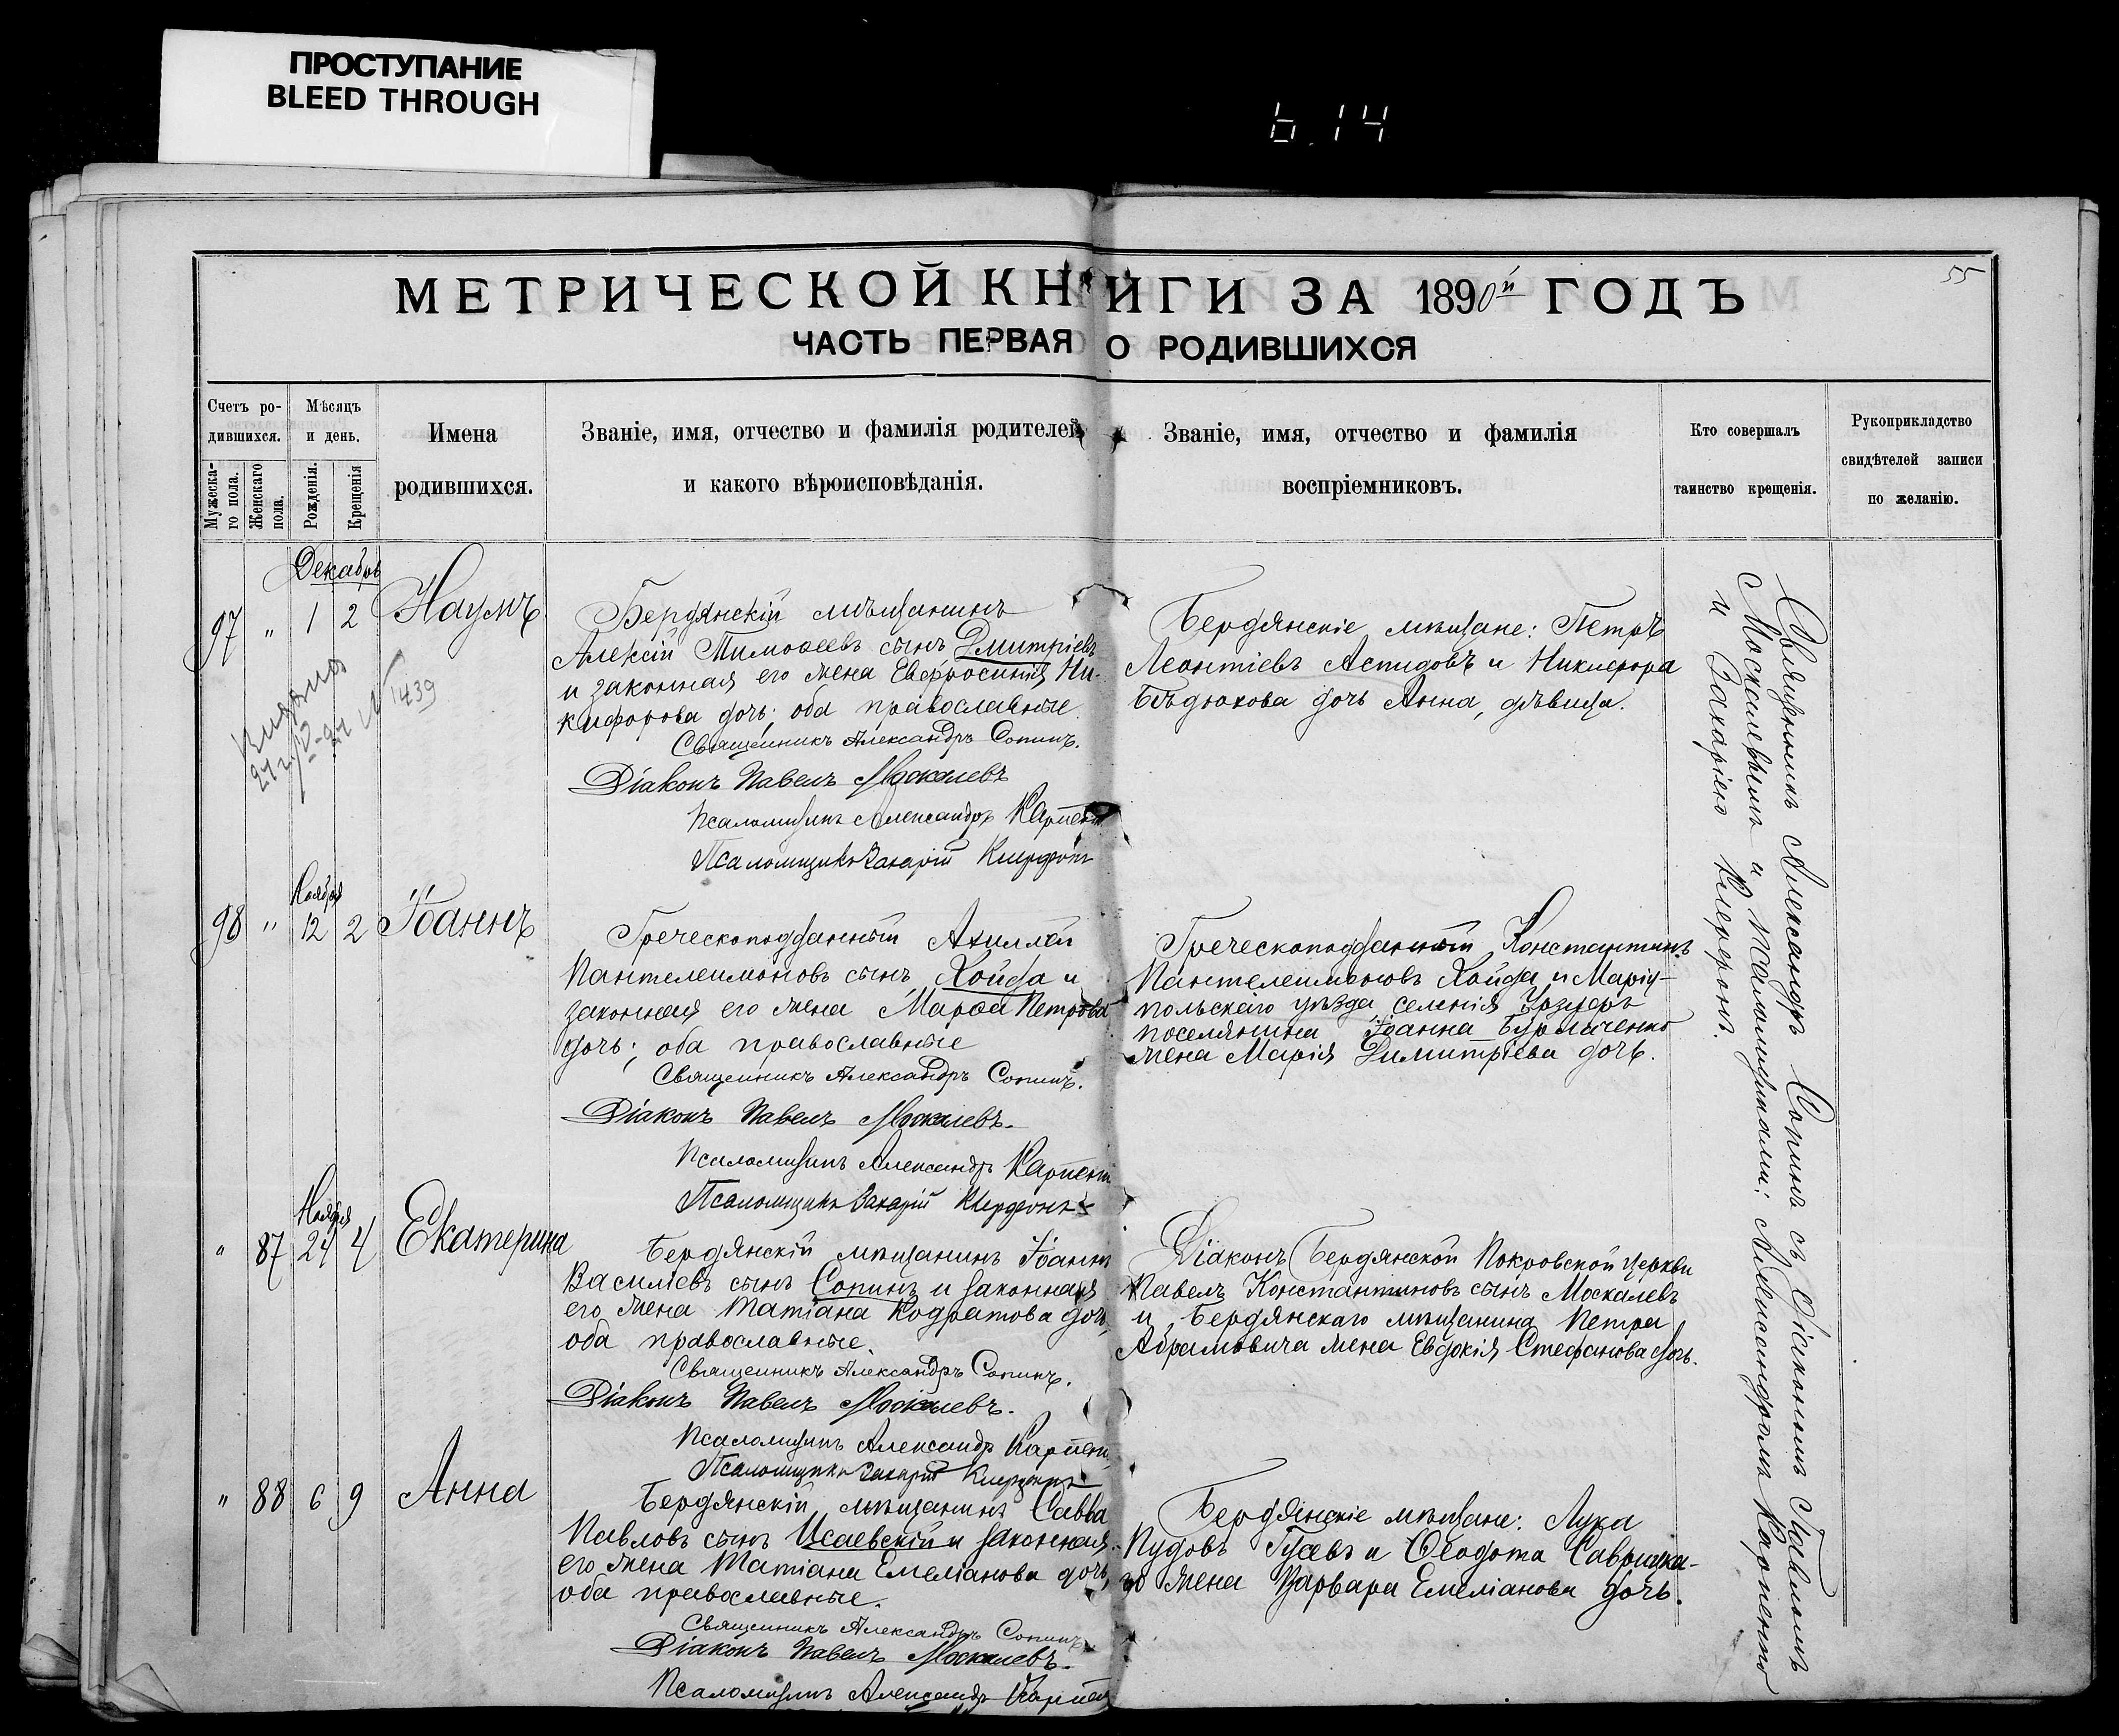 ПРОСТУПАНИЕ
BLEED THROUGH
6.14
55
МЕТРИЧЕСКОЙ КНИГИ ЗА 1890й ГОДЪ
ЧАСТЬ ПЕРВАЯ О РОДИВШИХСЯ
Счетъ ро-
дившихся.
Мужеска-
го пола.
Женскаго
пола.
Мѣсяцъ
и день.
Рожденія.
Крещенія
Имена
родившихся.
Званіе, имя, отчество и фамилія родителей
и какого вѣроисповѣданія.
Званіе, имя, отчество и фамилія
воспріемниковъ.
Кто совершалъ
таинство крещенія.
Рукоприкладство
свидѣтелей записи
по желанію.
Декабрь
97 " 1 2 Наумъ
Бердянскій мѣщанинъ
Алексій Тимоѳеевъ сынъ Дмитріевъ
и законная его жена Евфросинія Ни-
кифорова дочь; оба православные.
Священникъ Александръ Сопинъ.
Діаконъ Павелъ Москалевъ
Псаломщикъ Александръ
Псаломщикъ Захарій
Бердянскіе мѣщане: Петръ
Леонтіевъ Аспидовъ и Никифора
Бѣдюхова дочь Анна, дѣвица.
№ 1439
Ноября
98 " 12 2 Іоаннъ
Греческоподданный Ахиллей
Пантелеимоновъ сынъ Хойда и
законная его жена Марѳа Петрова
дочь; оба православные
Священникъ Александръ Сопинъ.
Діаконъ Павелъ Москалевъ.
Псаломщикъ Александръ
Псаломщикъ Захарій
Греческоподданный Константинъ
Пантелеимоновъ Хойда и Маріу-
польскаго уѣзда, селенія Урзуфъ
поселянина Іоанна Бурлаченко
жена Марія Димитріева дочь.
Ноября
" 87 24 4 Екатерина
Бердянскій мѣщанинъ Іоаннъ
Василіевъ сынъ Сопинъ и законная
его жена Татіана Кодратова дочь,
оба православные.
Священникъ Александръ Сопинъ.
Діаконъ Павелъ Москалевъ.
Псаломщикъ Александръ
Псаломщикъ Захарій
Діаконъ Бердянской Покровской церкви
Павелъ Константиновъ сынъ Москалевъ
и Бердянскаго мѣщанина Петра
Абрамовича жена Евдокія Стефанова дочь.
" 88 6 9 Анна
Бердянскій мѣщанинъ Савва
Павловъ сынъ Исаевскій и законная
его жена Татіана Емеліанова дочь,
оба православные.
Священникъ Александръ Сопинъ
Діаконъ Павелъ Москалевъ.
Псаломщикъ Александръ
Бердянскіе мѣщане: Лука
Пудовъ Гусевъ и Ѳеодота
жена Варвара Емеліанова дочь.
Священникъ Александръ Сопинъ съ Діакономъ Павломъ
Москалевымъ и псаломщиками: Александромъ Карпенко
и Захаріею